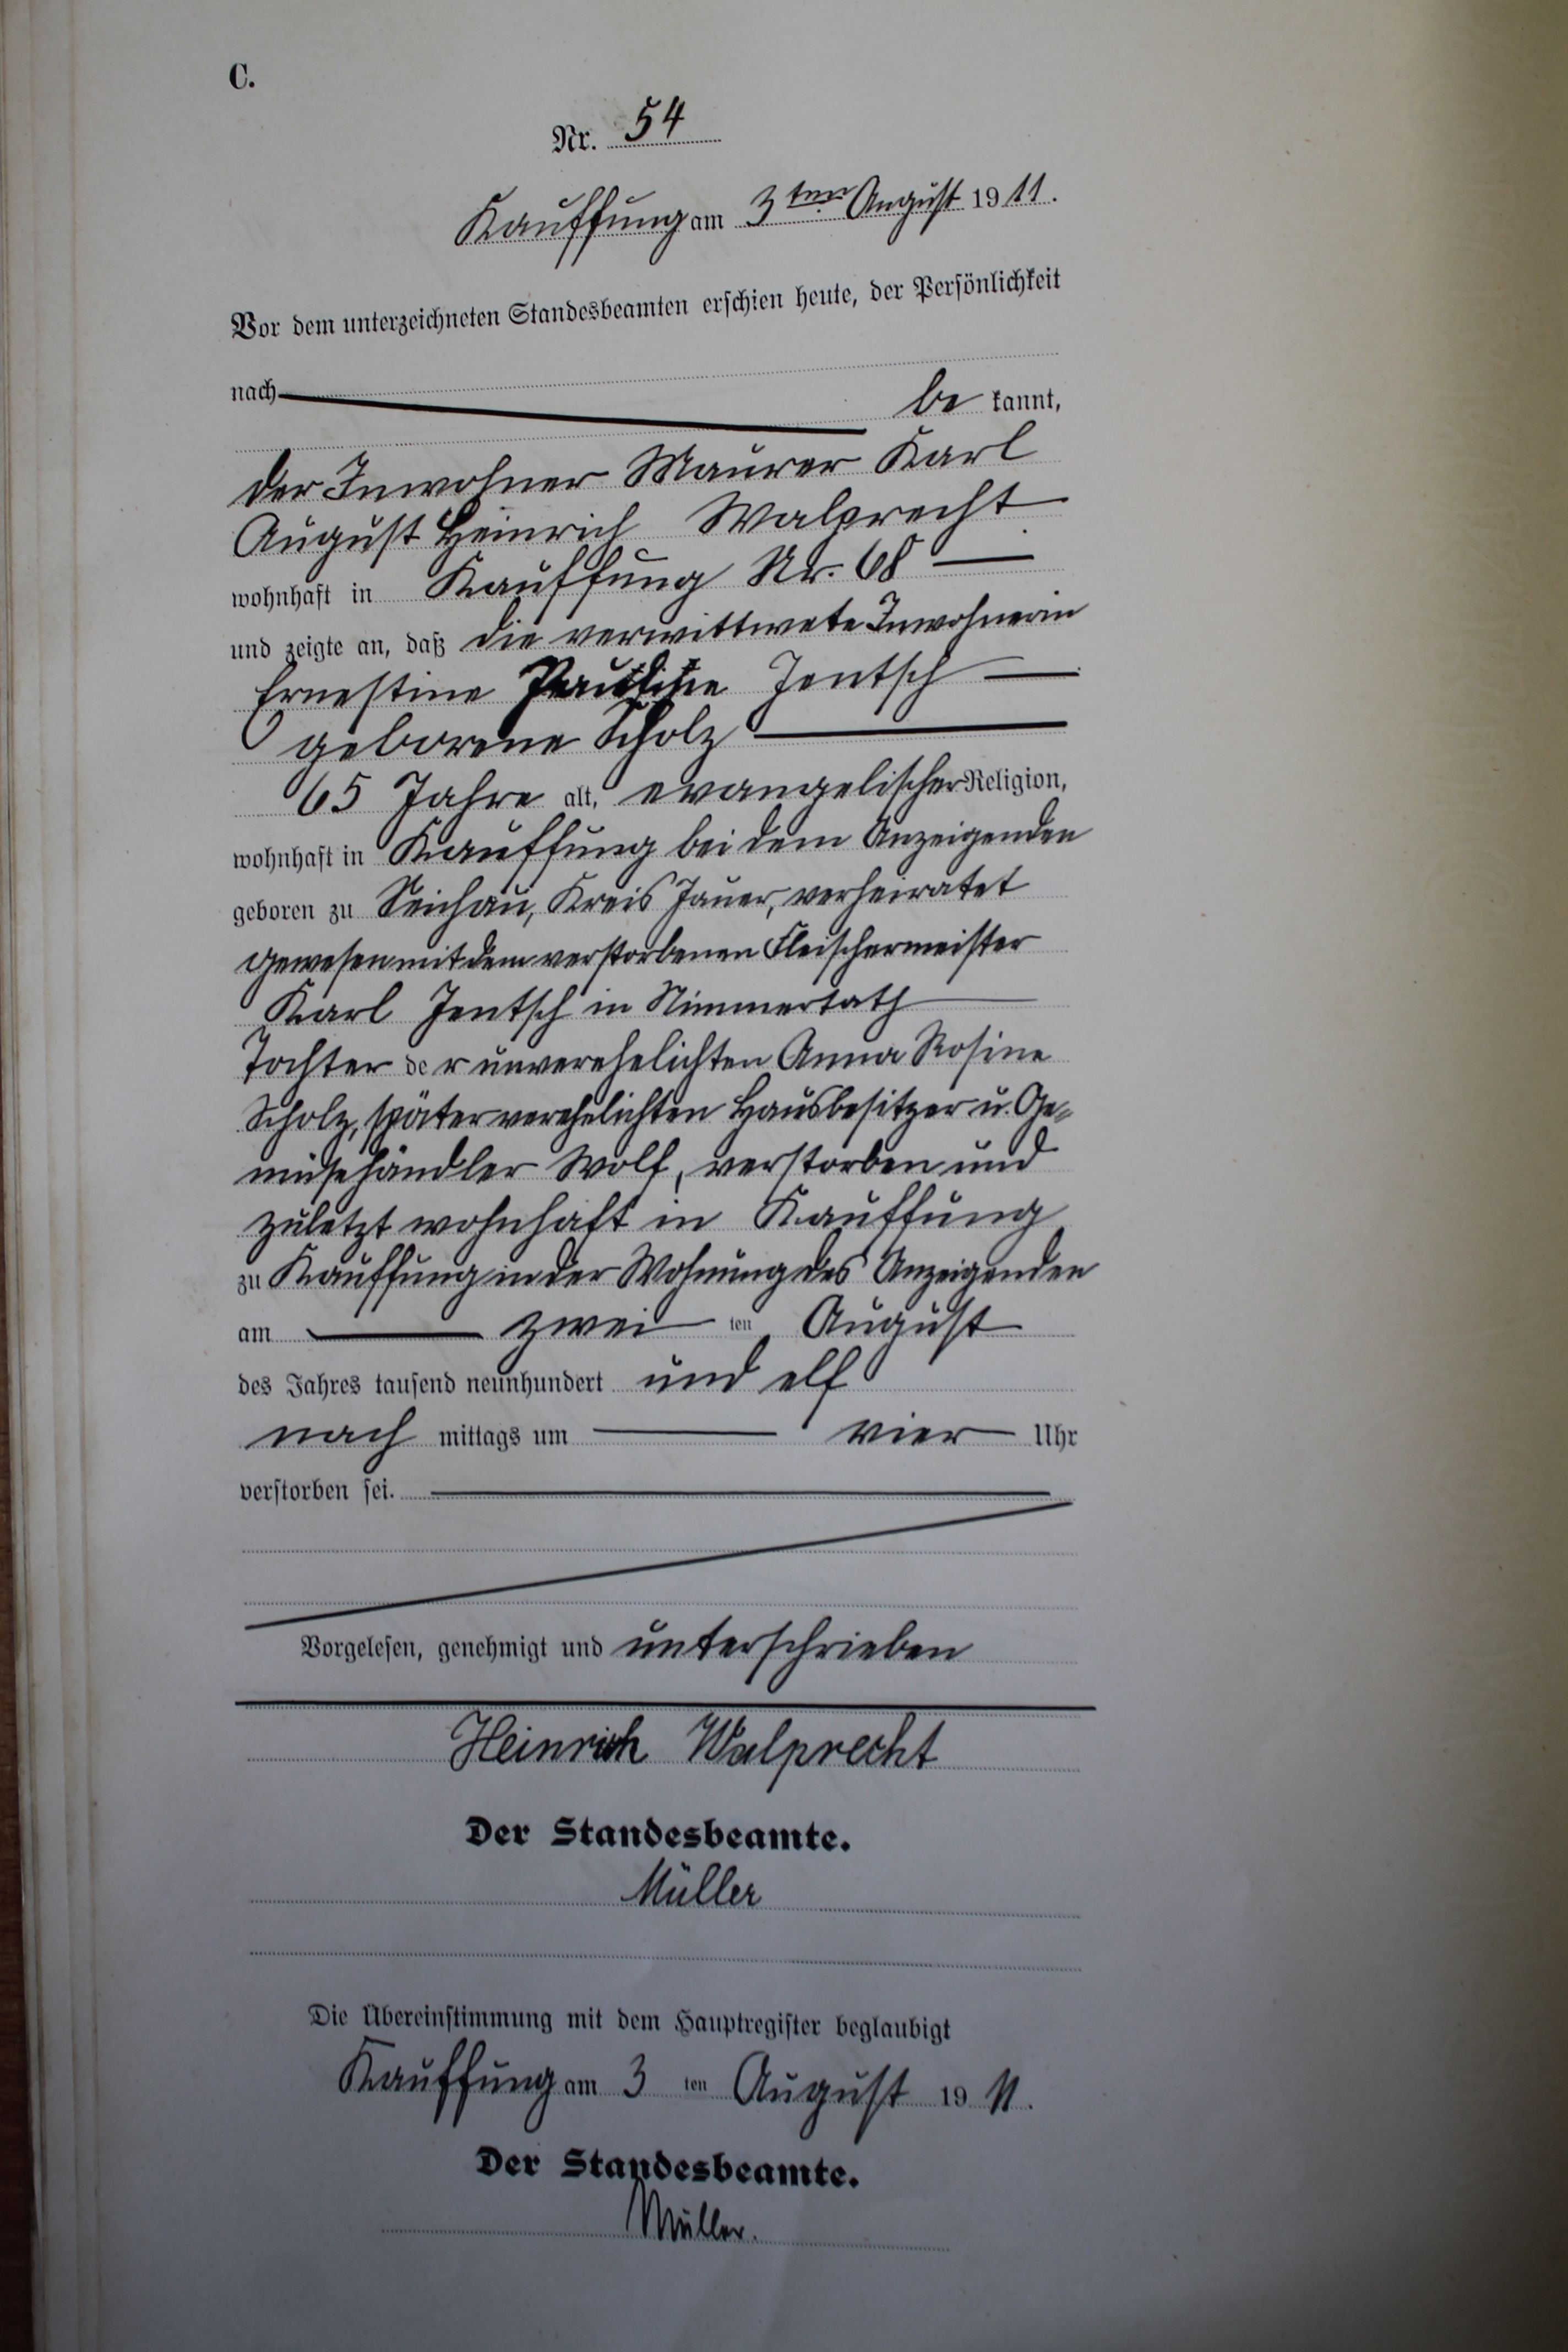 C.
Nr. 54
Kauffung am 3ten August 1911.
Vor dem unterzeichneten Standesbeamten erschien heute, der Persönlichkeit
nach
be kannt,
der Inwohner Maurer Karl
August Heinrich Walprecht
wohnhaft in Kauffung Nr. 68
und zeigte an, daß die verwittwete Inwohnerin
Ernestine Pauline Jentsch
geborene Scholz
65 Jahre alt, evangelischer Religion,
wohnhaft in Kauffung bei dem Anzeigenden
geboren zu Seichau, Kreis Jauer, verheiratet
gewesen mit dem verstorbenen Fleischermeister
Karl Jentsch in Nimmersath
Tochter der unverehelichten Anna Rosine
Scholz, später verehelichten Hausbesitzer u. Ge-
müsehändler Wolf, verstorben und
zuletzt wohnhaft in Kauffung
zu Kauffung in der Wohnung des Anzeigenden
am zwei ten August
des Jahres tausend neunhundert und elf
nach mittags um vier Uhr
verstorben sei.
Vorgelesen, genehmigt und unterschrieben
Heinrich Walprecht
Der Standesbeamte.
Müller
Die Übereinstimmung mit dem Hauptregister beglaubigt
Kauffung am 3 ten August 1911.
Der Standesbeamte.
Müller.